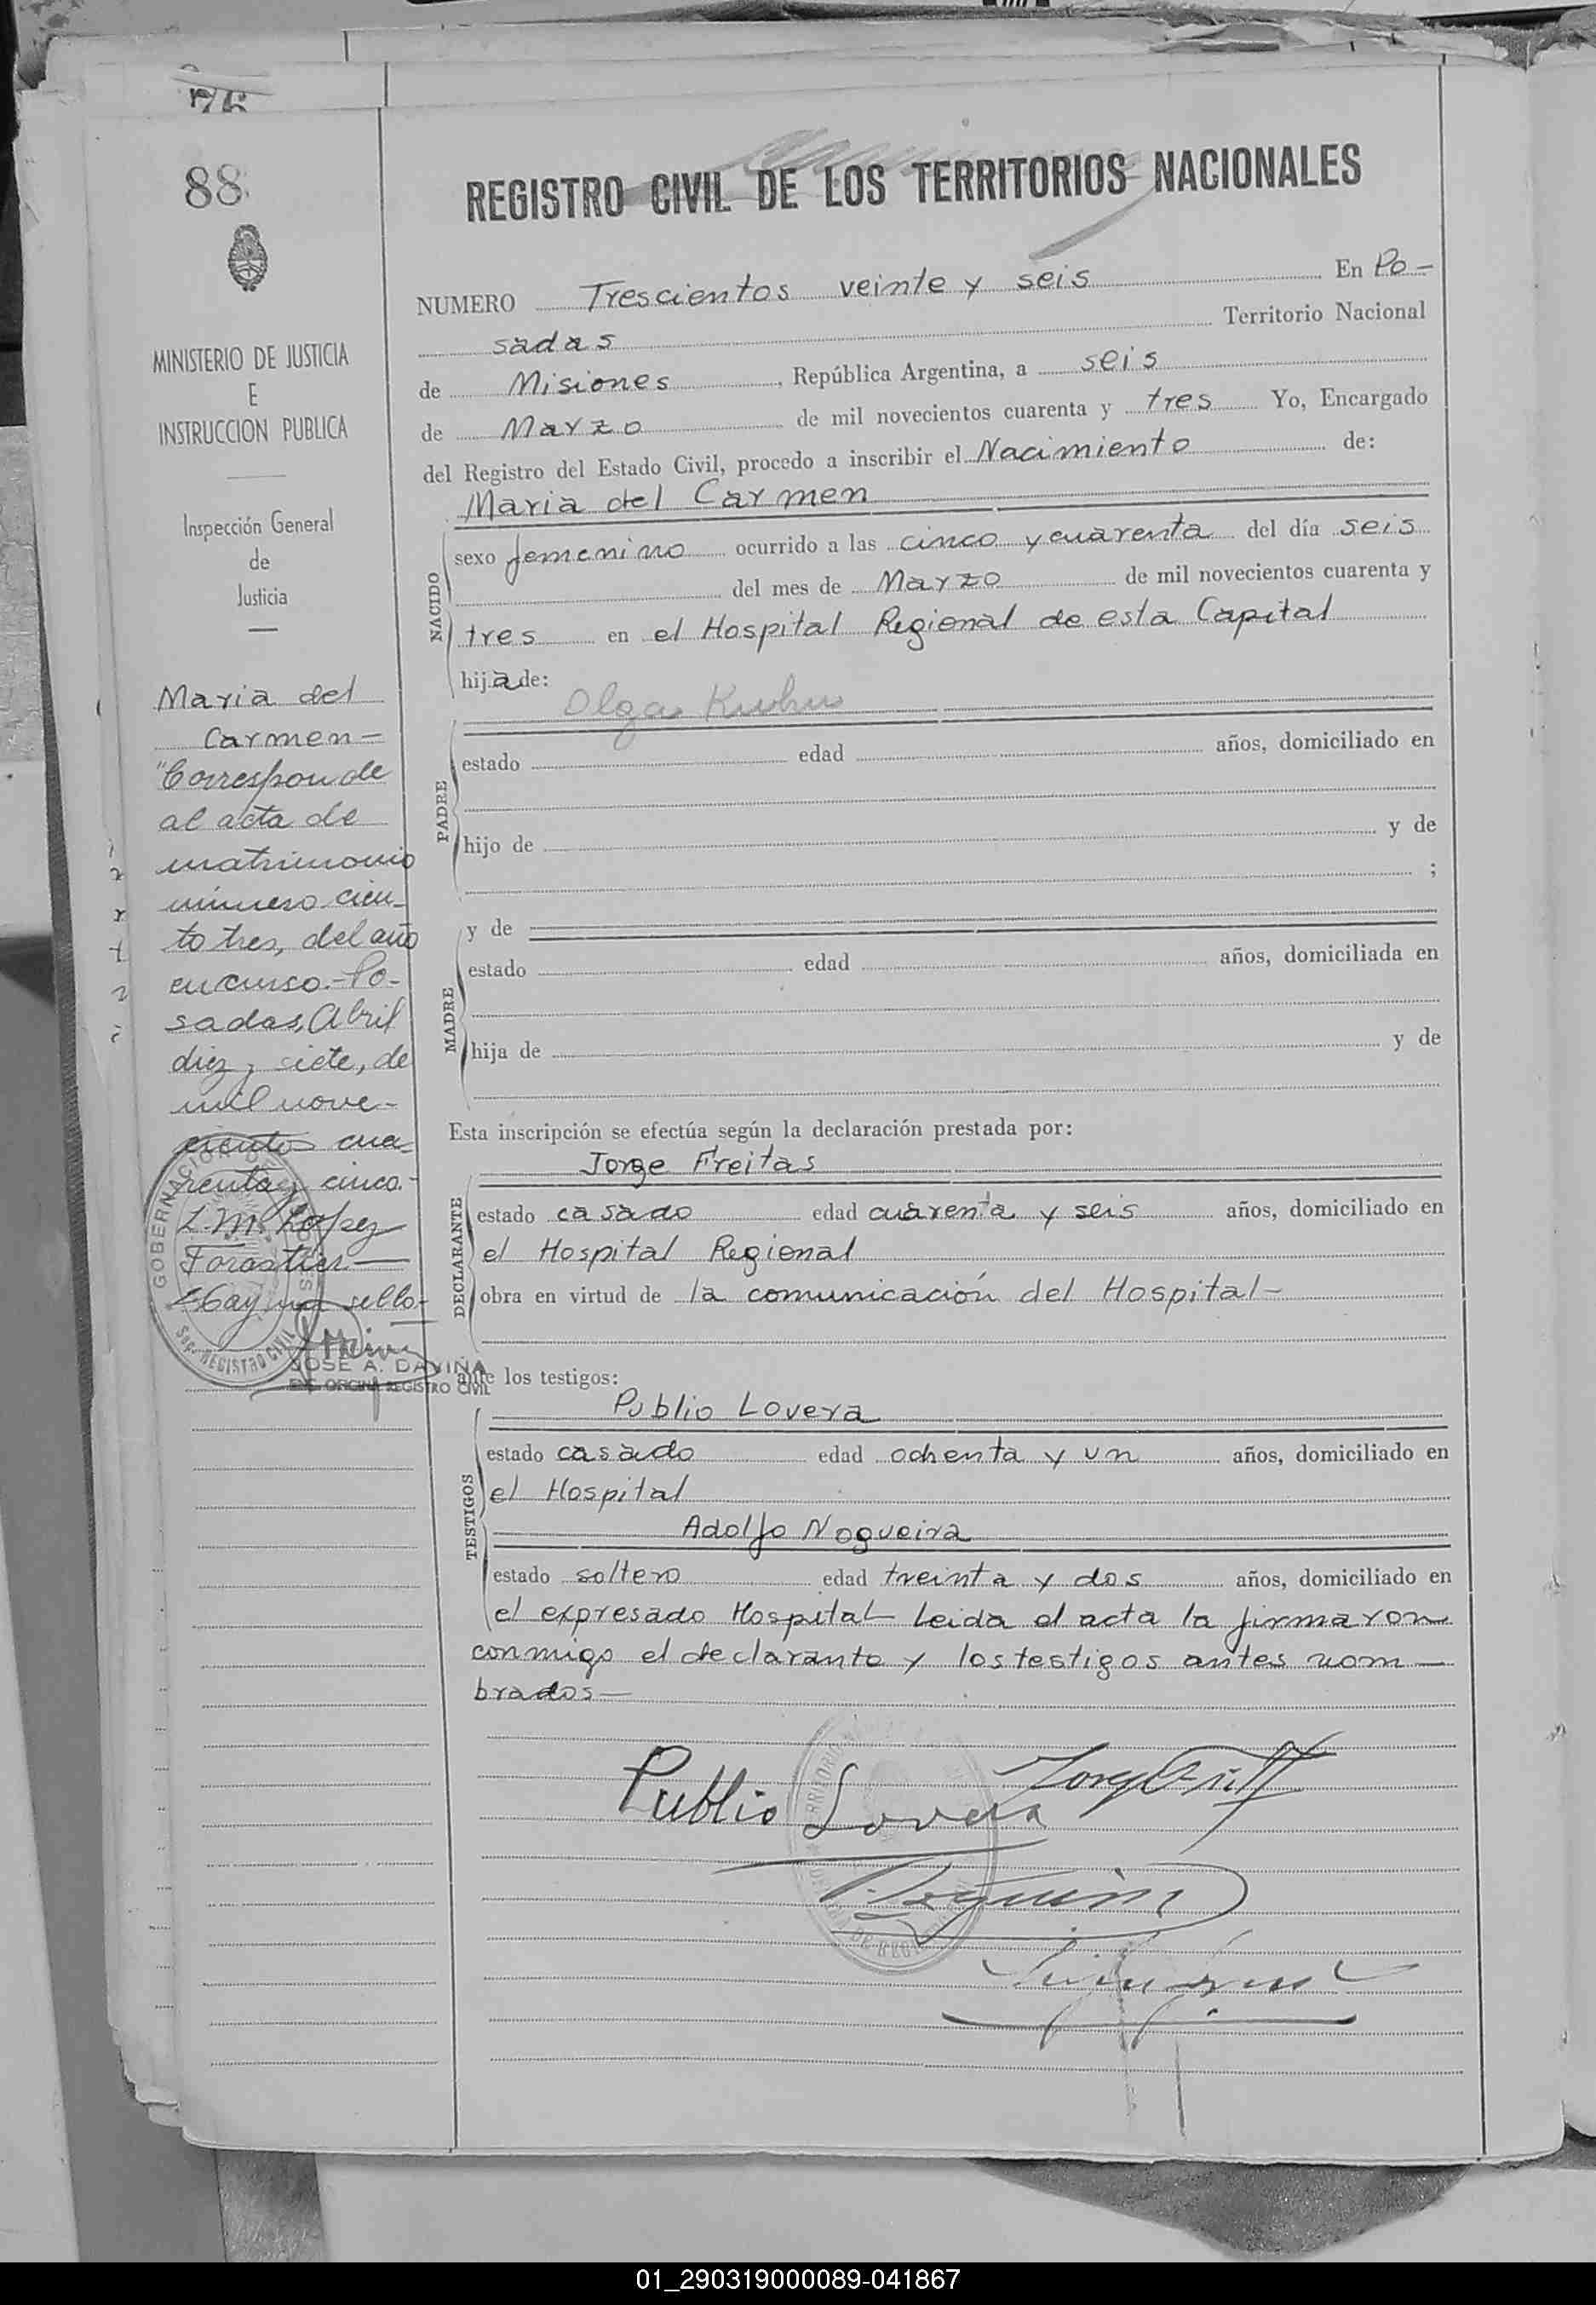 88
REGISTRO CIVIL DE LOS TERRITORIOS NACIONALES
NUMERO Trescientos veinte y seis En Po-
sadas Territorio Nacional
de Misiones, República Argentina, a seis
de Marzo de mil novecientos cuarenta y tres Yo, Encargado
del Registro del Estado Civil, procedo a inscribir el Nacimiento de:
Maria del Carmen
NACIDO
sexo femenino ocurrido a las cinco y cuarenta del día seis
del mes de Marzo de mil novecientos cuarenta y
tres en el Hospital Regional de esta Capital
hija de:
Olga Kuhn
PADRE
estado edad años, domiciliado en
hijo de y de
;
MADRE
y de
estado edad años, domiciliada en
hija de y de
Esta inscripción se efectúa según la declaración prestada por:
Jorge Freitas
DECLARANTE
estado casado edad cuarenta y seis años, domiciliado en
el Hospital Regional
obra en virtud de la comunicación del Hospital-
ante los testigos:
Publio Lovera
TESTIGOS
estado casado edad ochenta y un años, domiciliado en
el Hospital
Adolfo Nogueira
estado soltero edad treinta y dos años, domiciliado en
el expresado Hospital- Leida el acta la firmaron
conmigo el declarante y los testigos antes nom-
brados-
Publio Lovera
MINISTERIO DE JUSTICIA
E
INSTRUCCION PUBLICA
Inspección General
de
Justicia
Maria del
Carmen-
"Corresponde
al acta de
matrimonio
número cien-
to tres, del año
en curso.- Po-
sadas, Abril
diez y siete, de
mil nove-
cientos cua-
renta y cinco.-
L. M. Lopez
Forastier-
Hay un sello-
GOBERNACION
REGISTRO CIVIL
JOSE A. DAVIÑA
ENC. OFICINA REGISTRO CIVIL
01_290319000089-041867